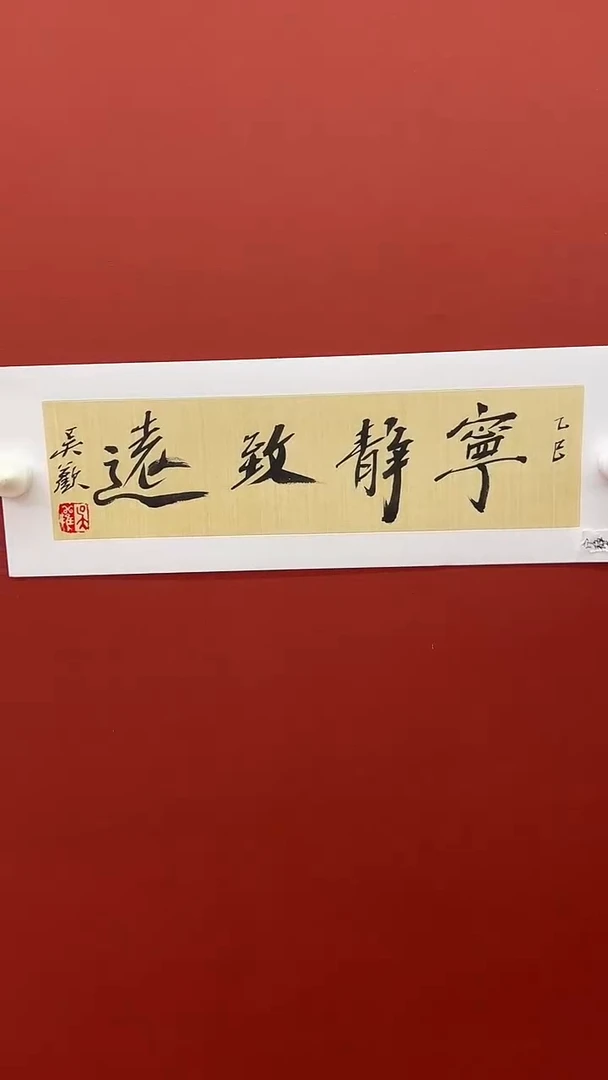 乙巳
寧靜致遠
吳歡